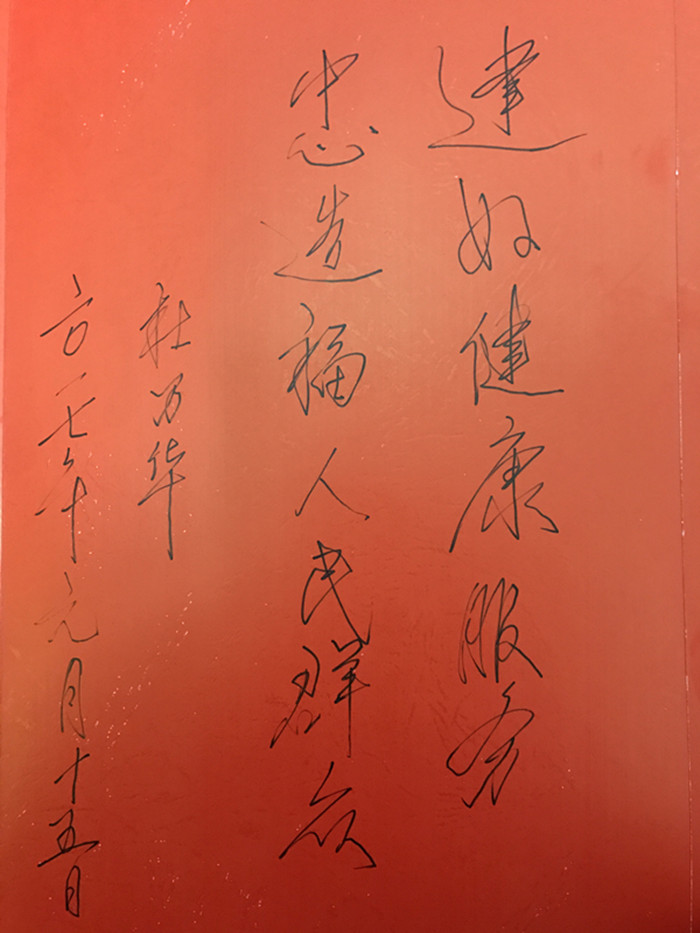 建好健康服务
中心造福人民群众
杜华
二〇一七年元月十五日